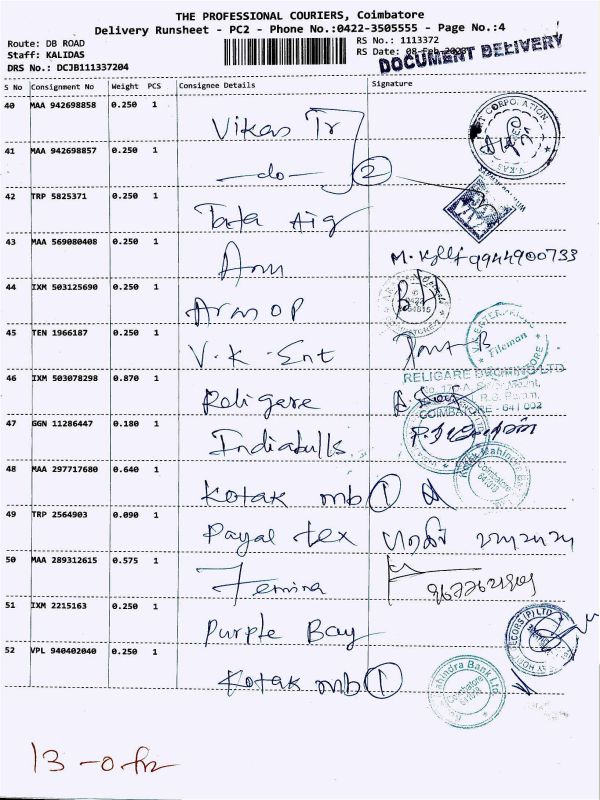 THE PROFESSIONAL COURIERS, Coimbatore
Delivery Runsheet - PC2 - Phone No.:0422-3505555 - Page No.:4
Route: DB ROAD
Staff: KALIDAS
DRS No.: DCJB111337204
RS No.: 1113372
RS Date: 08-Feb
DOCUMENT DELIVERY
S No Consignment No Weight PCS Consignee Details Signature
40 MAA 942698858 0.250 1 Vikas Tr
41 MAA 942698857 0.250 1 -do- 2
42 TRP 5825371 0.250 1 Tata Aig
43 MAA 569080408 0.250 1 9944900733
44 IXM 503125690 0.250 1
45 TEN 1966187 0.250 1 V.K. Ent
46 IXM 503078298 0.870 1 Religare
47 GGN 11286447 0.180 1 Indiabulls
48 MAA 297717680 0.640 1 Kotak mb 1
49 TRP 2564903 0.090 1 Payal tex
50 MAA 289312615 0.575 1 Femina
51 IXM 2215163 0.250 1 Purple Bay
52 VPL 940402040 0.250 1 Kotak mb 1
CORPORATION
VIKAS
ENTERPRISE
Tileman
RELIGARE
COIMBATORE - 641 002
Kotak Mahindra Bank
Coimbatore
Mahindra Bank Ltd
Coimbatore
13